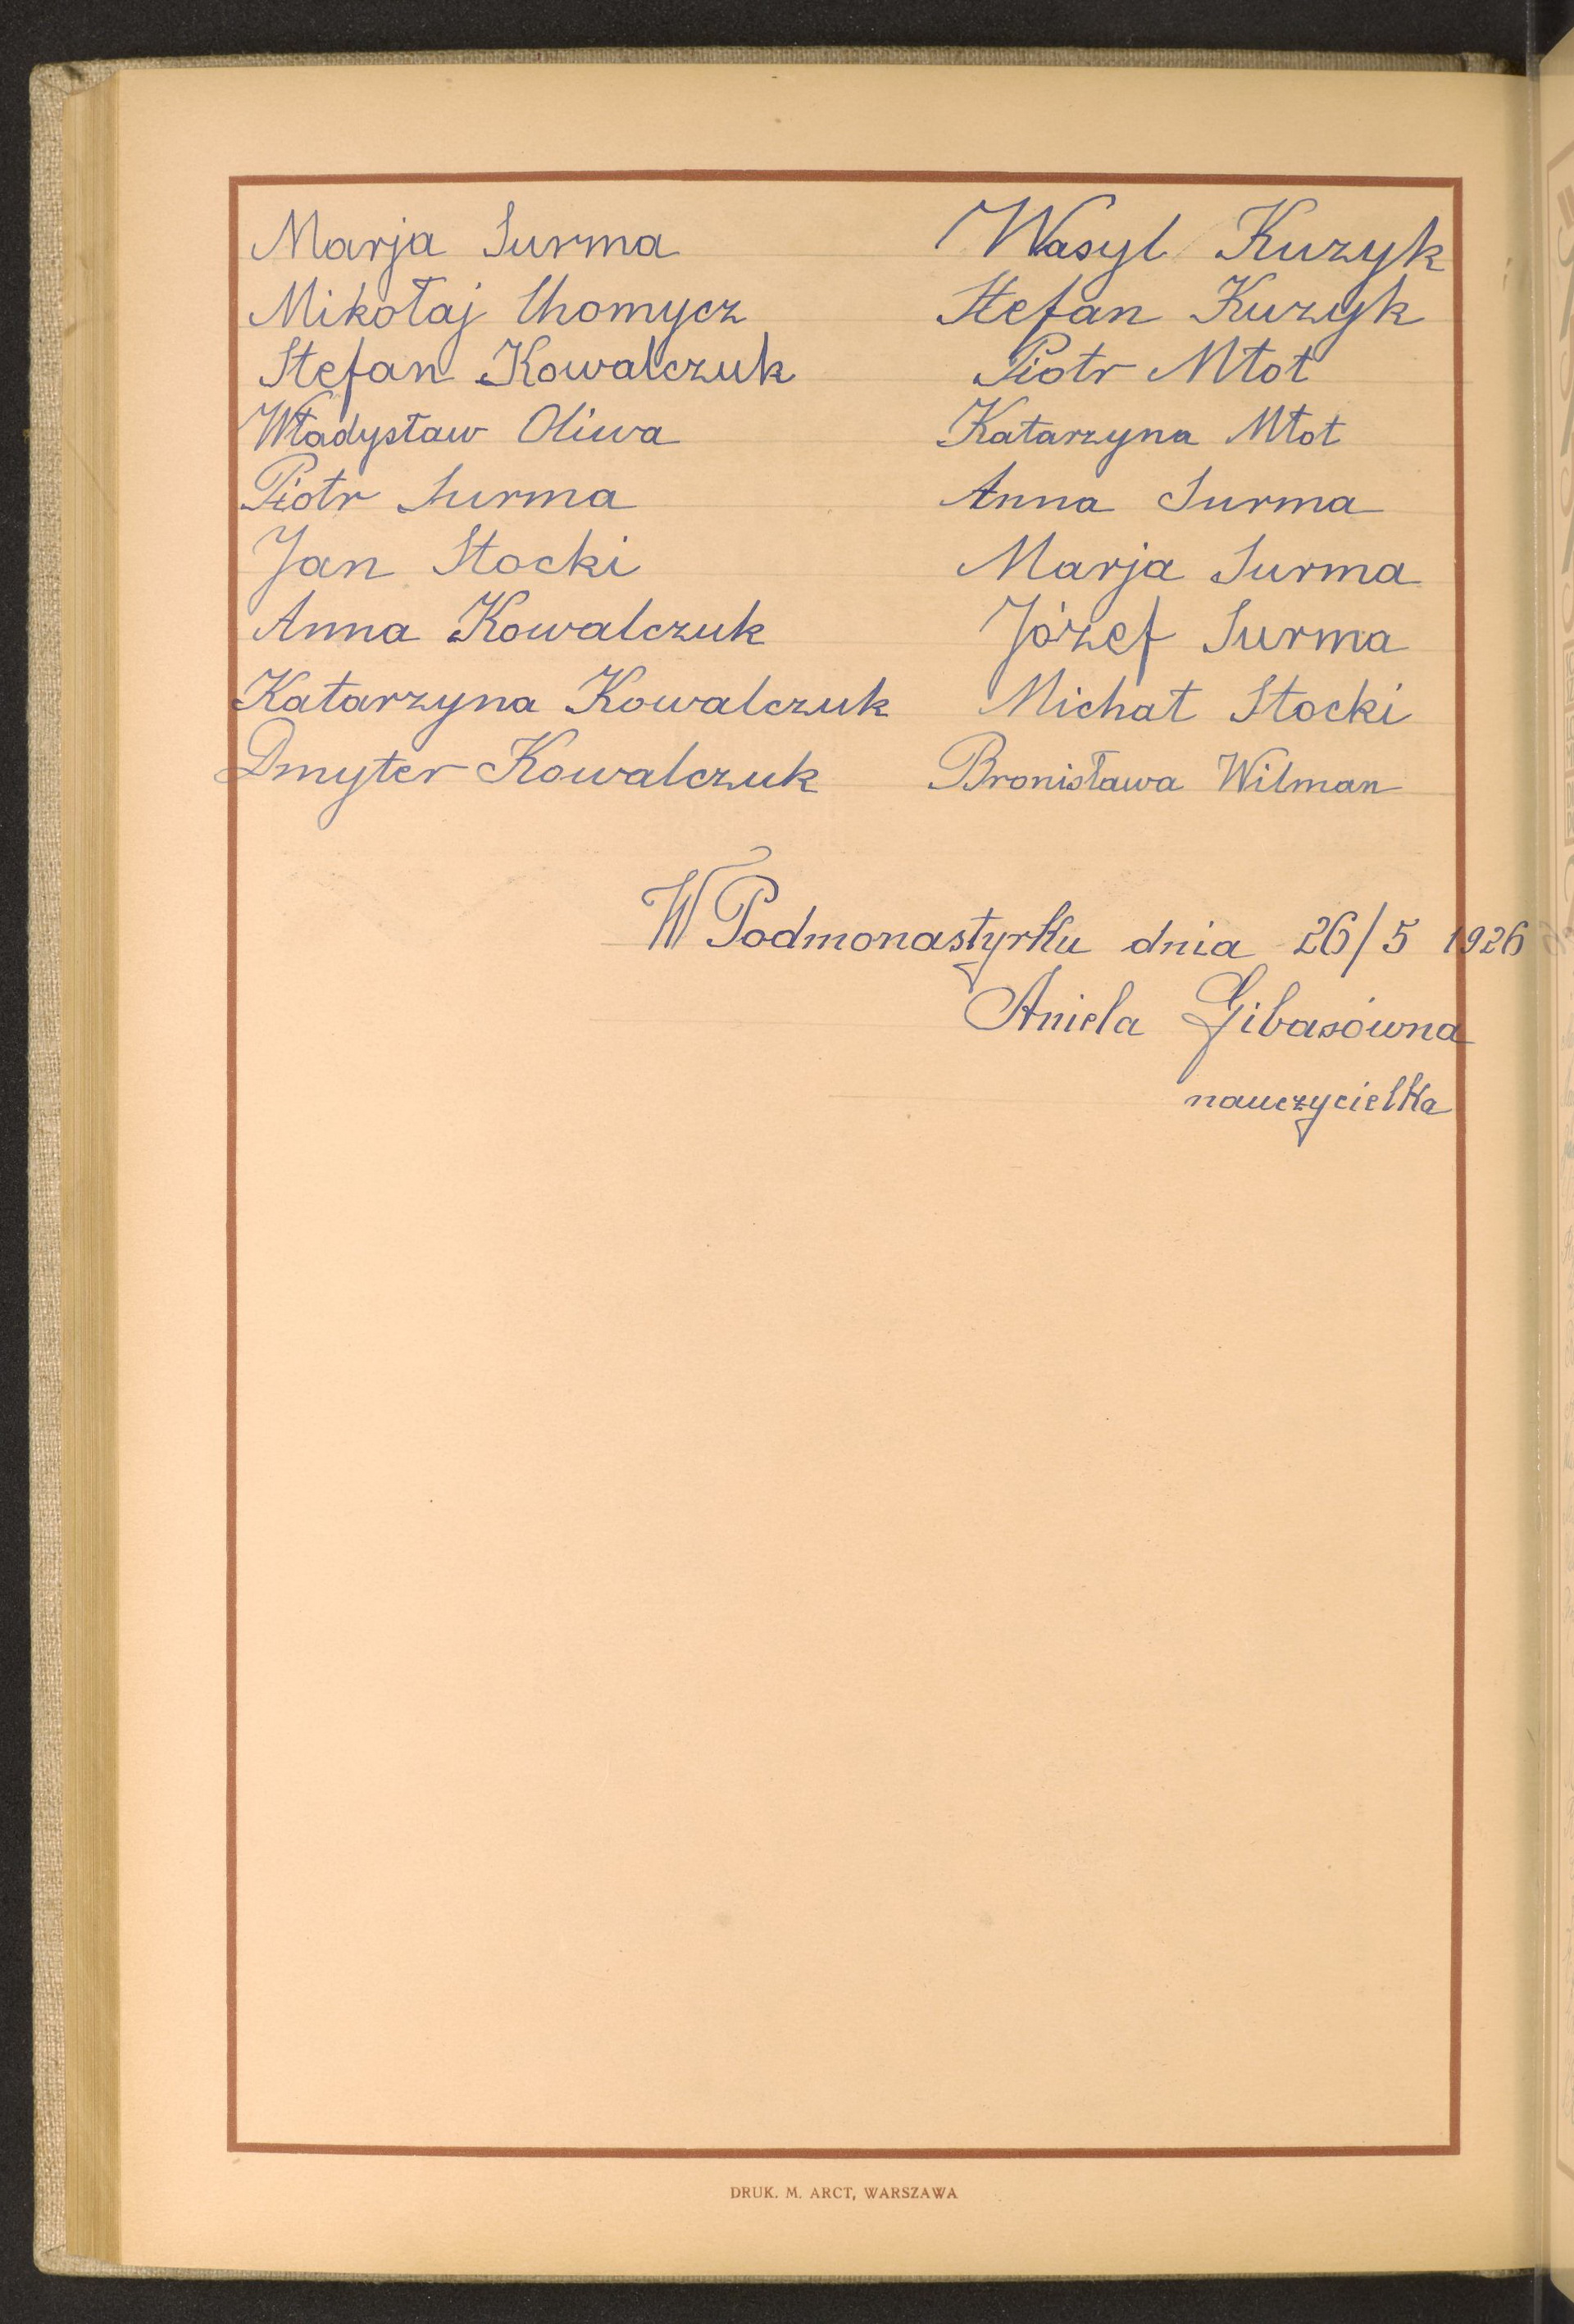 Marja Surma
Mikołaj Chomycz
Stefan Kowalczuk
Władysław Oliwa
Piotr Surma
Jan Stocki
Anna Kowalczuk
Katarzyna Kowalczuk
Dmyter Kowalczuk
Wasyl Kuzyk
Stefan Kuzyk
Piotr Młot
Katarzyna Młot
Anna Surma
Marja Surma
Józef Surma
Michał Stocki
Bronisława Wilman
W Podmonastyrku dnia 26/5 1926
Aniela Gibasówna
nauczycielka
DRUK. M. ARCT, WARSZAWA